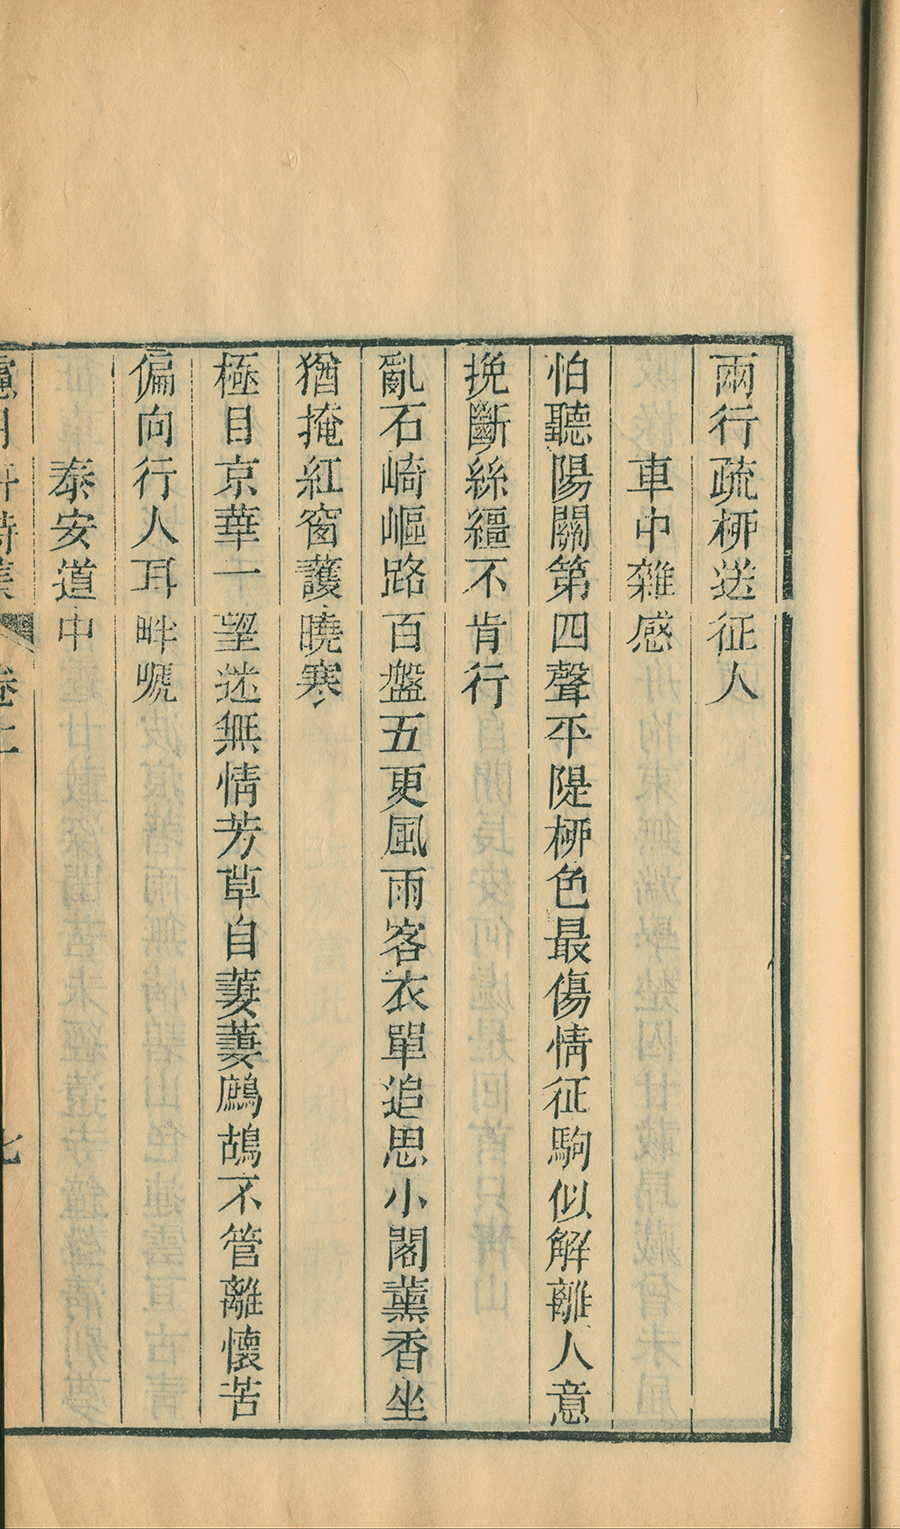 兩行疏栁送征人
車中雜感
怕聽陽關第四聲平隄栁色最傷情征駒似解離人意
挽斷絲繮不肯行
亂石崎嶇路百盤五更風雨客衣單追思小閣薰香坐
猶掩紅窗護曉寒
極目京華一望迷無情芳草自萋萋鷓鴣不管離懷苦
偏向行人耳畔嗁
泰安道中
卷上
七